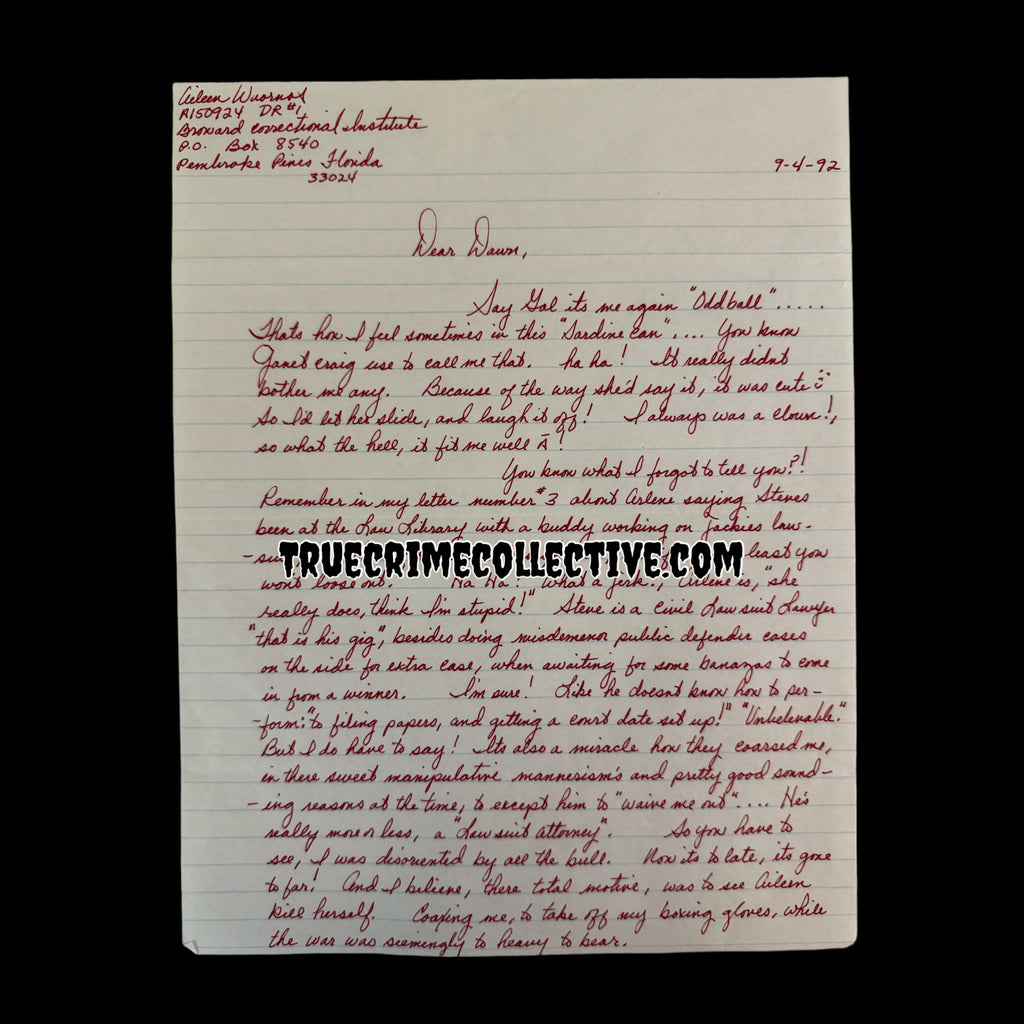 Aileen Wuornos
A150924 DR #1
Broward Correctional Institute
P.O. Box 8540
Pembroke Pines Florida
33024
9-4-92
Dear Dawn,
Say Gal its me again "Oddball".....
Thats how I feel sometimes in this "Sardine can".... You know
Janet craig use to call me that. ha ha! It really didnt
bother me any. Because of the way she'd say it, it was cute
So I'd let her slide, and laugh it off! I always was a clown!,
so what the hell, it fit me well !
You know what I forgot to tell you?!
Remember in my letter number #3 about Arlene saying Steves
been at the Law Library with a buddy working on Jackies law-
TRUECRIMECOLLECTIVE.COM
least you
wont loose out. Ha Ha! What a jerk!, Arlene is, "she
really does, think I'm stupid!" Steve is a Civil Law suit Lawyer
"that is his gig", besides doing misdemenor public defender cases
on the side for extra case, when awaiting for some bananzas to come
in from a winner. I'm sure! Like he doesnt know how to per-
-form: "to filing papers, and getting a court date set up!" "Unbelievable."
But I do have to say! Its also a miracle how they coarsed me,
in there sweet manipulative mannerism's and pretty good sound-
-ing reasons at the time, to except him to "waive me out".... He's
really more or less, a "Law suit attorney". So you have to
see, I was disoriented by all the bull. Now its to late, its gone
to far! And I believe, there total motive, was to see Aileen
kill herself. Coaxing me, to take off my boxing gloves, while
the war was seemingly to heavy to bear.